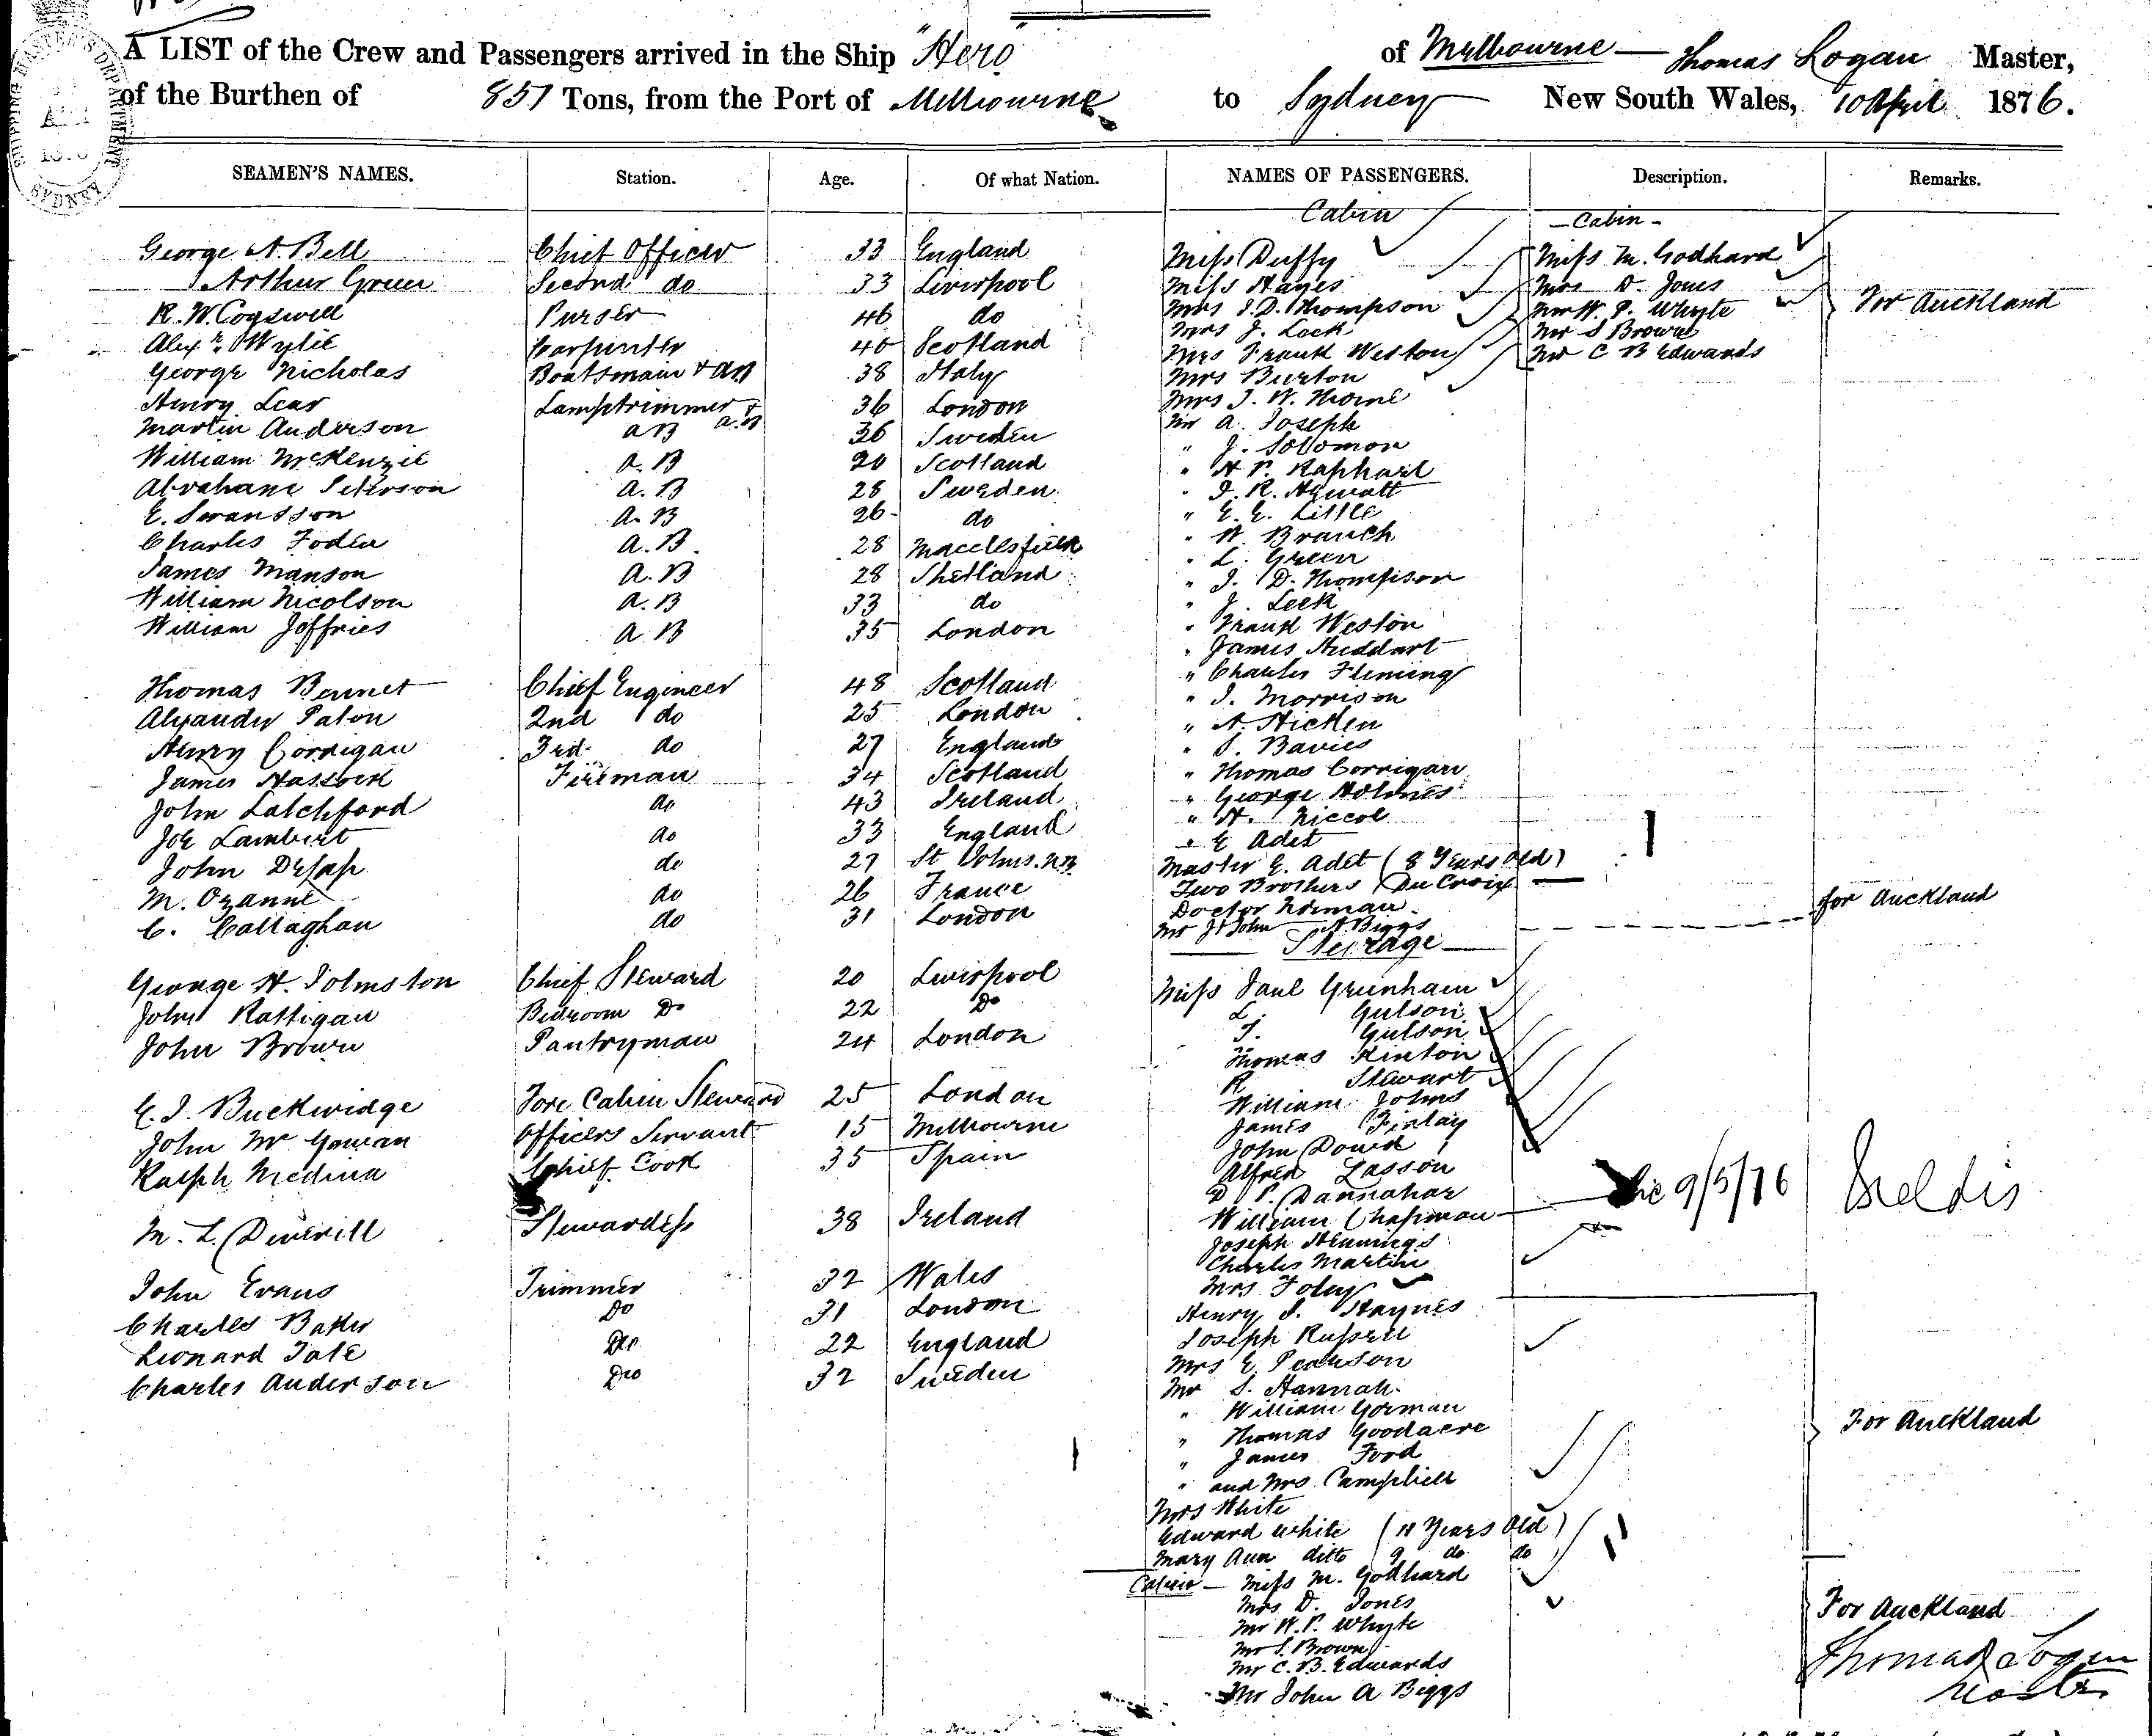 A LIST of the Crew and Passengers arrived in the Ship "Hero" of Melbourne — Thomas Logan Master,
of the Burthen of 851 Tons, from the Port of Melbourne to Sydney New South Wales, 10 April 1876.
SEAMEN'S NAMES. Station. Age. Of what Nation. NAMES OF PASSENGERS. Description. Remarks.
Cabin — Cabin —
George A. Bell Chief Officer 33 England Miss Duffy Miss M. Godhard
Arthur Green Second do 33 Liverpool Miss Hayes Mrs D. Jones
R. W. Cogswell Purser 46 do Mrs J. D. Thompson Mr W. P. Whyte For Auckland
Alexr. Wylie Carpenter 40 Scotland Mrs J. Leek Mr S Brown
George Nicholas Boatsmain & AB 38 Italy Mrs Frank Weston Mr C B Edwards
Henry Lear Lamptrimmer & A.B 36 London Mrs Burton
Martin Anderson AB 36 Sweden Mrs J. W. Thorne
William McKenzie A.B 20 Scotland Mr A. Joseph
Abrahame Peterson A.B 28 Sweden " J. Solomon
E. Swansson A.B 26 do " H. P. Raphael
Charles Foden A.B. 28 Macclesfield
James Manson A.B 28 Shetland " E. E. Little
William Nicolson A.B 33 do " W. Branch
William Joffries A.B 35 London " L. Green
" J. D. Thompson
" J. Leek
" Frank Weston
" James Huddart
Thomas Bennet Chief Engineer 48 Scotland " Charles Fleming
Alexander Paton 2nd do 25 London " J. Morrison
Henry Corrigan 3rd do 27 England " A. Hicken
James Hassock Fireman 34 Scotland " S. Davies
John Latchford do 43 Ireland " Thomas Corrigan
Joe Lambert do 33 England " George Holmes
John do 27 St Johns. NB " H. Niccol
M. Ozanne do 26 France " E Adet
C. Callaghan do 31 London Master E. Adet (8 Years Old)
Two Brothers Du Croix —
Doctor Norman for Auckland
Mr John A Biggs
Steerage
George H. Johnston Chief Steward 20 Liverpool Miss Jane Grenham
John Rattigan Bedroom Do 22 Do L. Gulson
John Brown Pantryman 24 London T. Gulson
Thomas Kinton
R Stewart
E. J. Buckridge Fore Cabin Steward 25 London William Johns
John McGowan Officers Servant 15 Melbourne James Finlay
Ralph Medina Chief Cook 35 Spain John Dowd
Alfred Lasson
D P. Dannahar
M. L. Deverill Stewardess 38 Ireland William Chapman 9/5/76
Joseph Hennings
Charles Martin
John Evans Trimmer 32 Wales Mrs Foley
Charles Baker Do 31 London Henry J. Haynes
Leonard Tate Do 22 England Joseph Russell
Charles Anderson Do 32 Sweden Mrs E. Pearson
Mr S. Hannah
" William Gorman For Auckland
" Thomas Goodacre
" James Ford
" and Mrs Campbell
Mrs White
Edward White (11 Years Old)
Mary Ann ditto (9 do do)
Cabin — Miss M. Godhard
Mrs D. Jones For Auckland
Mr W. P. Whyte
Mr S. Brown Thomas Logan
Mr C. B. Edwards Master
Mr John A Biggs